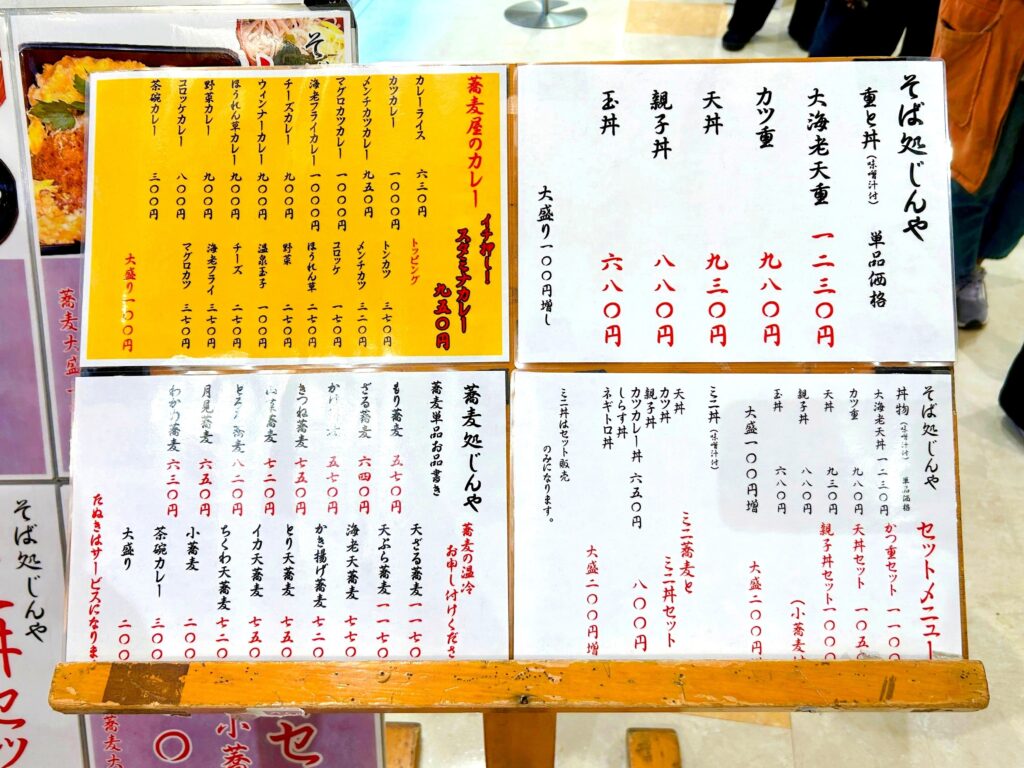 そば処じんや
重と丼（味噌汁付） 単品価格
大海老天重 一二三〇円
カツ重 九八〇円
天丼 九三〇円
親子丼 八八〇円
玉丼 六八〇円
大盛り一〇〇円増し
蕎麦屋のカレー
イチ押し！
スタミナカレー
九五〇円
カレーライス 六三〇円
カツカレー 一〇〇〇円
メンチカツカレー 九五〇円
マグロカツカレー 一〇〇〇円
海老フライカレー 一〇〇〇円
チーズカレー 九〇〇円
ウィンナーカレー 九〇〇円
ほうれん草カレー 九〇〇円
野菜カレー 九〇〇円
コロッケカレー 八〇〇円
茶碗カレー 三〇〇円
トッピング
トンカツ 三七〇円
メンチカツ 三二〇円
コロッケ 一七〇円
ほうれん草 二七〇円
野菜 二七〇円
温泉玉子 一〇〇円
チーズ 二七〇円
海老フライ 三七〇円
マグロカツ 三七〇円
大盛り一〇〇円
そば処じんや
丼物（味噌汁付） 単品価格
大海老天丼 一二三〇円
カツ重 九八〇円
天丼 九三〇円
親子丼 八八〇円
玉丼 六八〇円
大盛一〇〇円増
セットメニュー
かつ重セット 一一〇
天丼セット 一〇五
親子丼セット 一〇〇
（小蕎麦
大盛二〇〇円
ミニ丼（味噌汁付）
天丼
カツ丼
親子丼
カツカレー丼 六五〇円
しらす丼
ネギトロ丼
ミニ丼はセット販売
のみになります。
ミニ蕎麦と
ミニ丼セット
八〇〇円
大盛二〇〇円増
蕎麦処じんや
蕎麦単品お品書き
もり蕎麦 五七〇円
ざる蕎麦 六四〇円
かけ蕎麦 五七〇円
きつね蕎麦 七五〇円
蕎麦 七二〇円
とろろ蕎麦 八二〇円
月見蕎麦 六五〇円
わかめ蕎麦 六三〇円
蕎麦の温冷
お申し付けくださ
天ざる蕎麦 一一七〇
天ぷら蕎麦 一一七〇
海老天蕎麦 七七〇
かき揚げ蕎麦 七二〇
とり天蕎麦 七五〇
イカ天蕎麦 七五〇
ちくわ天蕎麦 七二〇
小蕎麦 二〇〇
茶碗カレー 三〇〇
大盛り 二〇〇
たぬきはサービスになりま
そ
蕎麦大盛
そば処じんや
丼セッ
蕎麦大
小蕎
セ